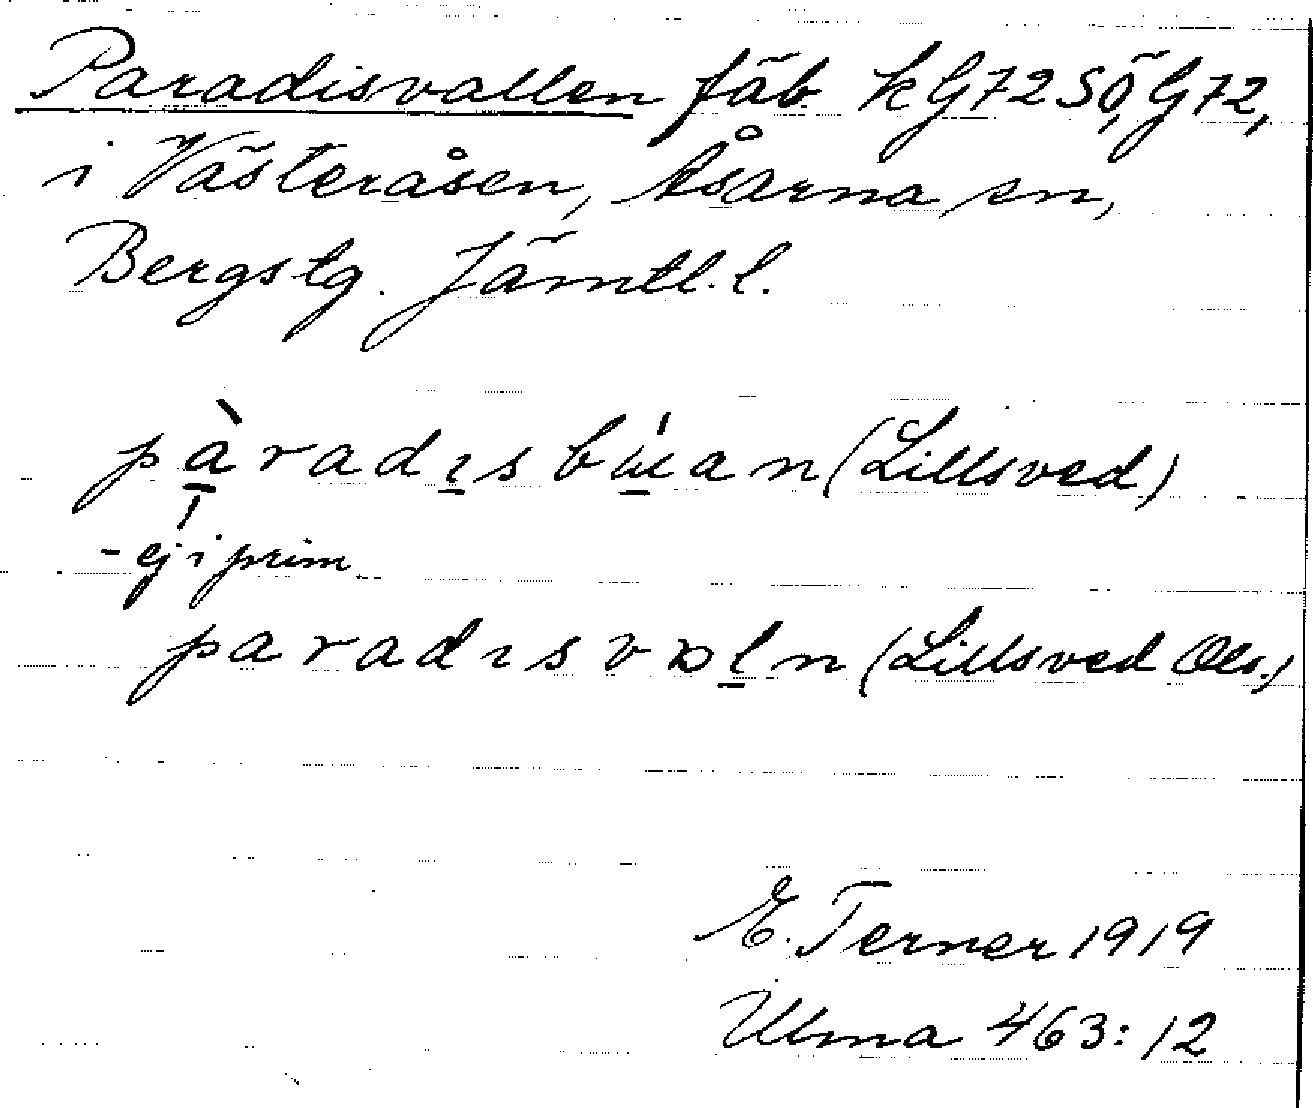 Paradisvallen fäb. kG72SÖ, G72,
i Västeråsen, Åsarna sn,
Bergs tg. Jämtl. l.
pàradɪsbɯ́an (Lillsved)
- ej i prim
paradɪsvɒḷn (Lillsved Ols.)
E. Terner 1919
Ulma 463:12